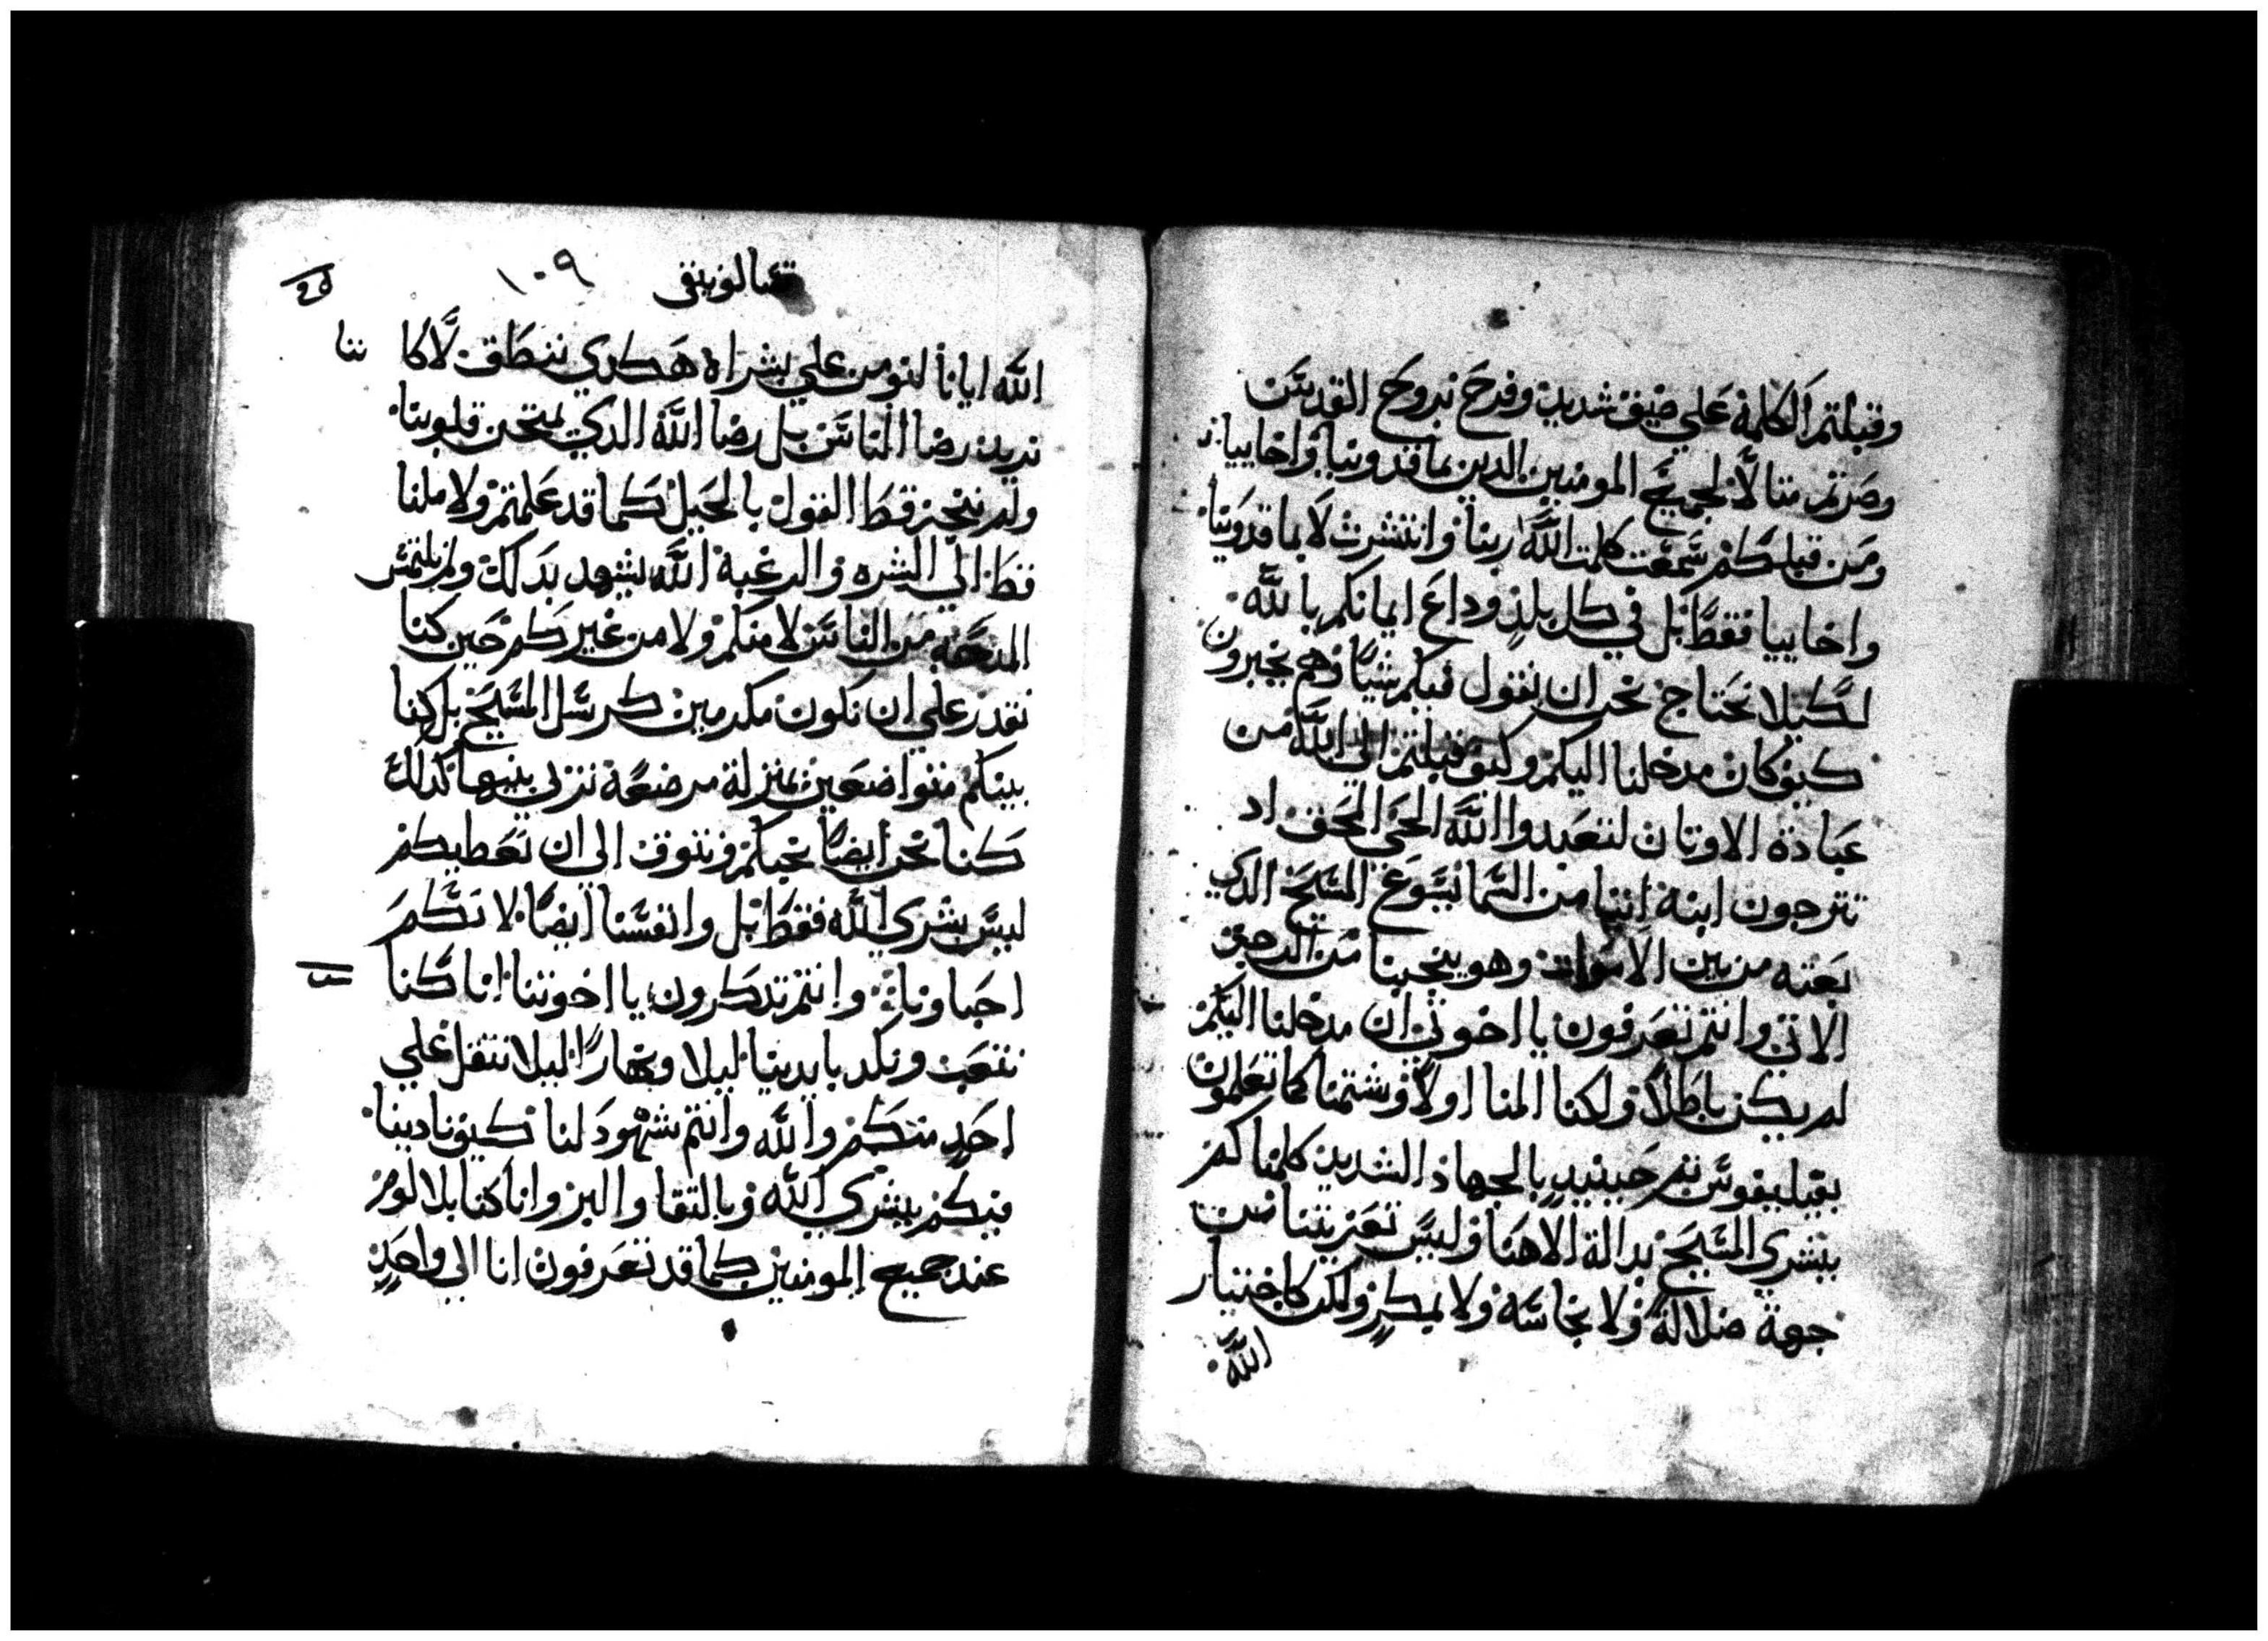 وقبلتم الكلمة علي ضيق شديد وفرح بروح القدس
وصرتم مثالاً لجميع المومنين الدين بماقدونيا واخاييا
ومن قبلكم سمعت كلمت الله ربنا وانتشرت لا بماقدونيا
واخاييا فقط بل في كل بلدٍ وداع ايمانكم بالله
لكيلا نحتاج نحن ان نقول فيكم شياً وهم يخبرون
كيف كان مدخلنا اليكم وكيف قبلتم الى الله من
عبادة الاوتان لتعبدوا الله الحي المحق اد
تترجون ابنه اتيا من السما يسوع المسيح الدي
بعته من بين الاموات وهو ينجينا من الرجز
الاتي وانتم تعرفون يا اخوتي ان مدخلنا اليكم
لم يكن باطلاً ولكنا المنا اولاً وشتمنا كما تعلمون
بفيليفوس تم حينيدٍ بالجهاد الشديد كلمناكم
ببشري المسيح بدالة الاهنا وليس تعزيتنا من
جهة ضلالة ولا نجاسة ولا بمكرٍ ولكن كاختيار
الله
تسالونيقي ١٠٩
الله ايانا لنومن علي بشراه هكدي ننطق لا كاننا
نريد رضا الناس بل رضا الله الدي يمتحن قلوبنا
ولم ننحز قط القول بالحيل كما قد علمتم ولا ملنا
قط الي الشره والرغبة الله يشهد بدلك ولم نلتمس
المدحه من الناس لا منكم ولا من غيركم حين كنا
نقدر علي ان نكون مكرمين كرسل المسيح بل كنا
بينكم متواضعين بمنزلة مرضعة تربي بنيها كدلك
كنا نحن ايضاً نحبكم ونتوق الى ان نعطيكم
ليس بشري الله فقط بل وانفسنا ايضاً لانكم
احباونا وانتم تدكرون يا اخوتنا انا كنا
نتعب ونكد بايدينا ليلا ونهاراً ليلا نتقل علي
احدٍ منكم والله وانتم شهود لنا كيف نادينا
فيكم ببشري الله وبالتقا والبر وانا كنا بلا لوم
عند جميع المومنين كما قد تعرفون انا الي واحدٍ